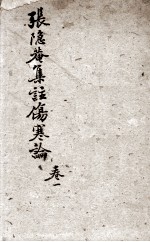 張隱菴集註傷寒論
卷一